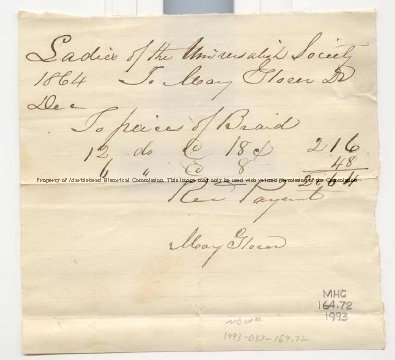 Ladies of the Universalist Society
1864 To May Glover Dr
Dec
To peices of Braid
12 do @ 18 ¢ 2 16
6 " @ 8 48
Property of Marblehead Historical Commission. This image may only be used with written permission of the Commission
2.64
Rec Payment
May Glover
MHC
164.72
1993
1993-037-164.72